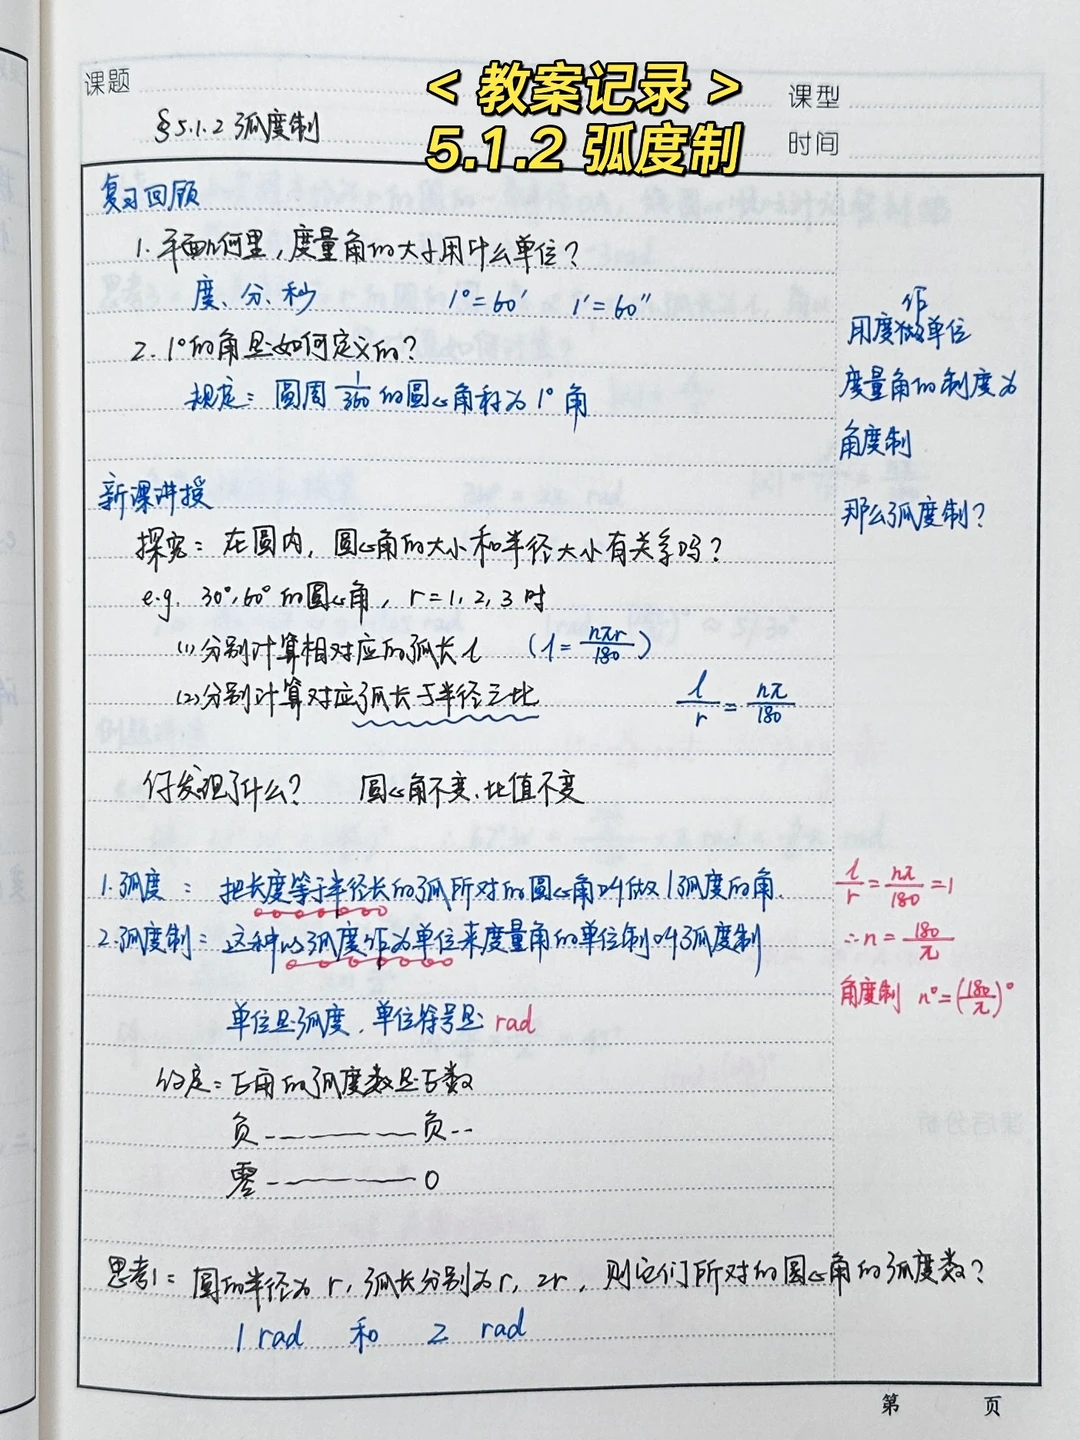 课题
<教案记录>
课型
§5.1.2 弧度制
5.1.2 弧度制
时间
复习回顾
1. 平面几何里，度量角的大小用什么单位？
度、分、秒 1°=60′ 1′=60″
2. 1°的角是如何定义的？
规定：圆周 1/360 的圆心角称为 1°角
作
用度做单位
度量角的制度为
角度制
那么弧度制？
新课讲授
探究：在圆内，圆心角的大小和半径大小有关系吗？
e.g. 30°,60°的圆心角，r=1,2,3 时
(1)分别计算相对应的弧长 l (l=nπr/180)
(2)分别计算对应弧长与半径之比 l/r=nπ/180
你发现了什么？ 圆心角不变，比值不变
1.弧度：把长度等于半径长的弧所对的圆心角叫做1弧度的角.
2.弧度制：这种以弧度作为单位来度量角的单位制叫弧度制
单位是弧度，单位符号是 rad
l/r=nπ/180=1
∴n=180/π
角度制 n°=(180/π)°
约定：正角的弧度数是正数
负------负--
零------0
思考1：圆的半径为 r，弧长分别为r，2r，则它们所对的圆心角的弧度数？
1 rad 和 2 rad
第 页